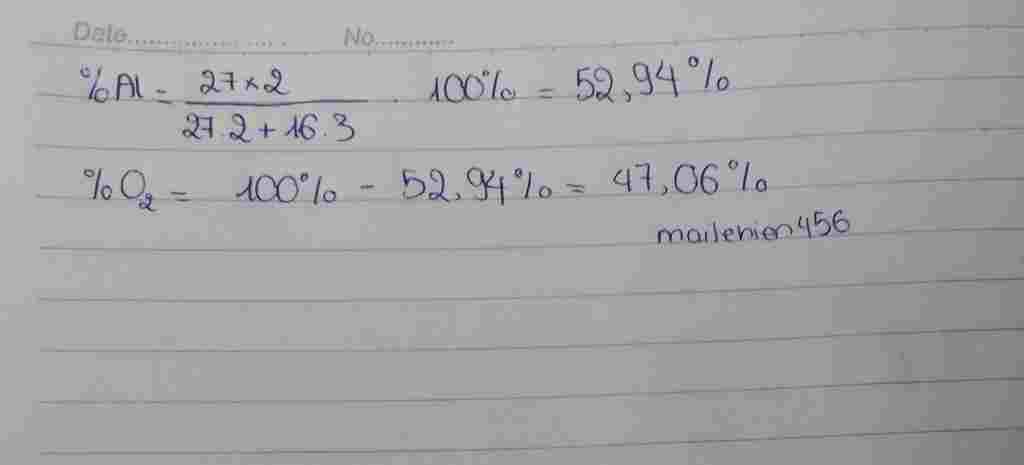 Date.................. No...........
%Al = 27×2 / 27.2 + 16.3 . 100% = 52,94%
%O₂ = 100% - 52,94% = 47,06%
mailenien456